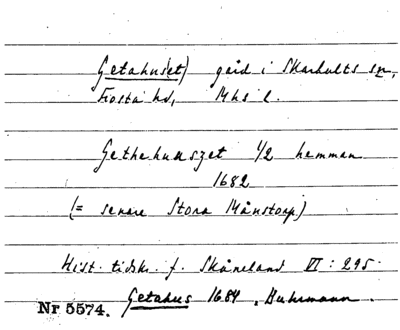 Getahus(et) gård i Skarhults sn,
Frosta hd, Mhs l.
Gethehuuszet 1/2 hemman
1682
(= senare Stora Månstorp)
Hist. tidskr. f. Skåneland VI : 295.
Getahus 1684, Buhrmann.
Nr 5574.